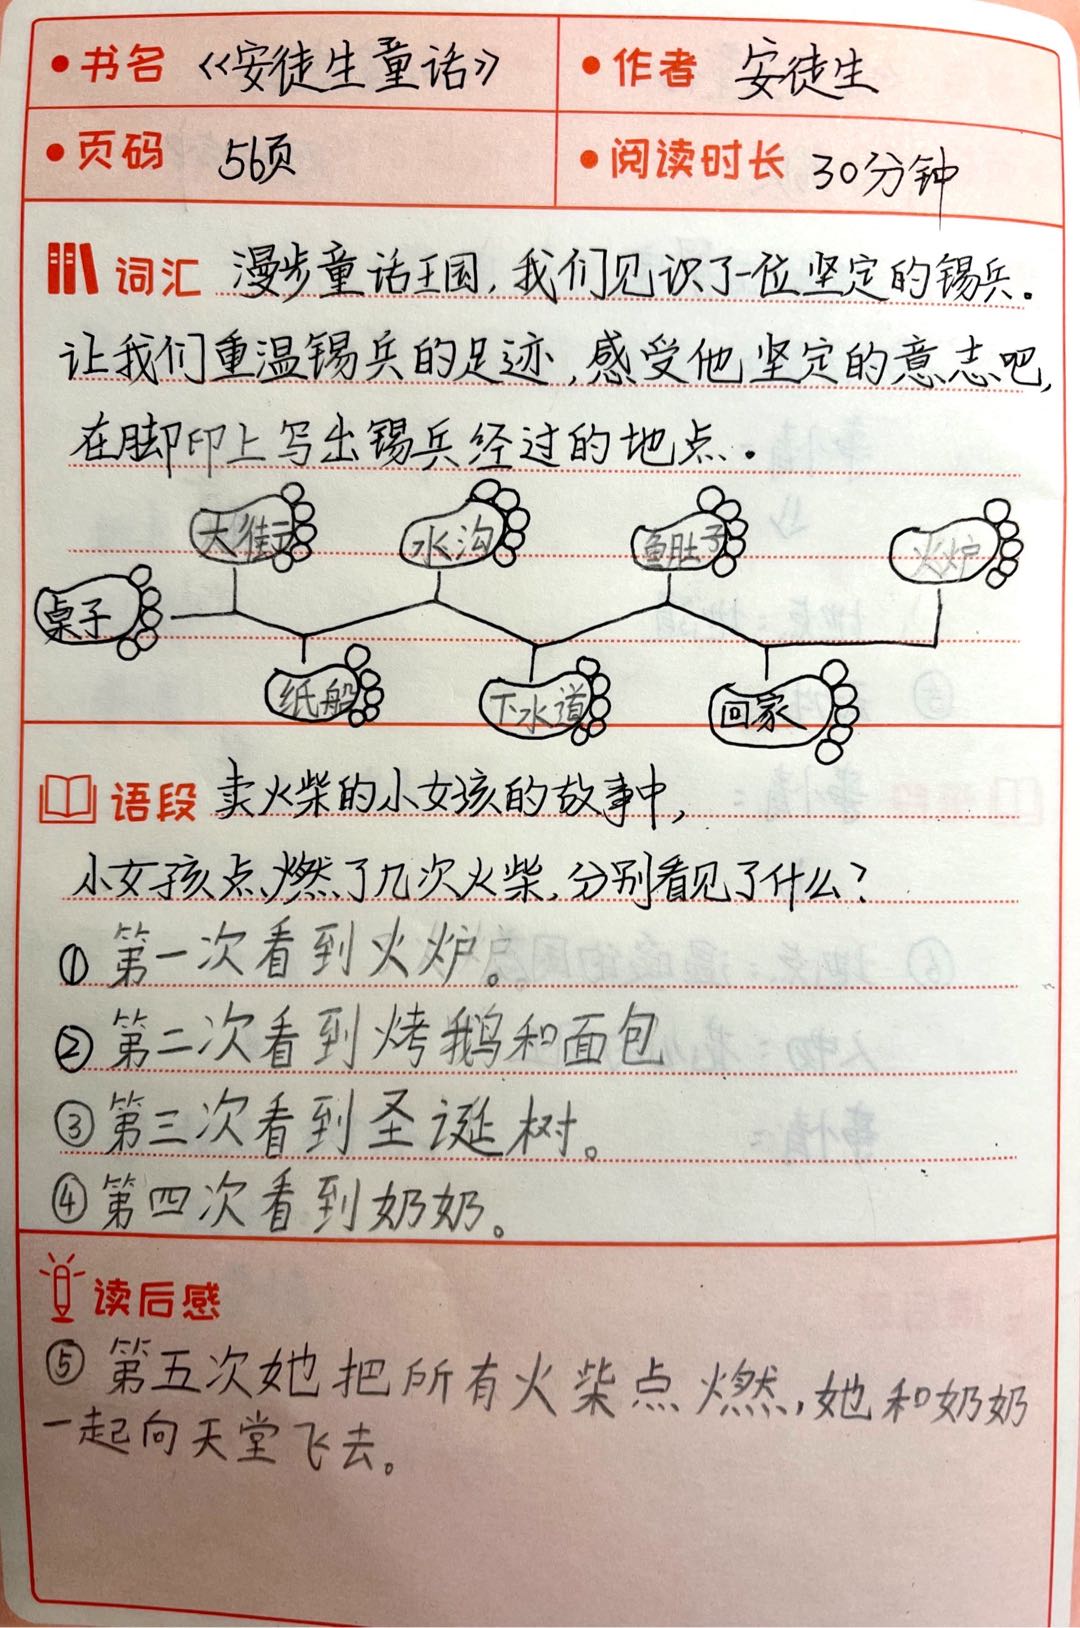 书名 《安徒生童话》 作者 安徒生
页码 56页 阅读时长 30分钟
词汇 漫步童话王国,我们见识了一位坚定的锡兵.
让我们重温锡兵的足迹,感受他坚定的意志吧,
在脚印上写出锡兵经过的地点.
大街 水沟 鱼肚子 火炉
桌子
纸船 下水道 回家
语段 卖火柴的小女孩的故事中,
小女孩点燃了几次火柴,分别看见了什么?
①第一次看到火炉。
②第二次看到烤鹅和面包
③第三次看到圣诞树。
④第四次看到奶奶。
读后感
⑤第五次她把所有火柴点燃,她和奶奶
一起向天堂飞去。